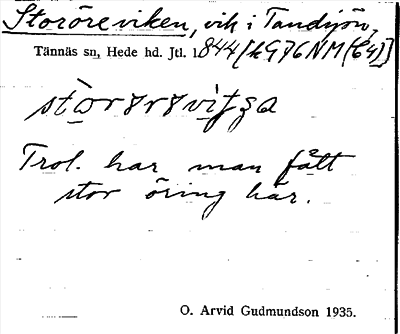 Storöreviken, vik i Tandsjön,
Tännäs sn, Hede hd. Jtl. 1844 [kG76NM(C4)]
Trol. har man fått
stor öring här.
O. Arvid Gudmundson 1935.